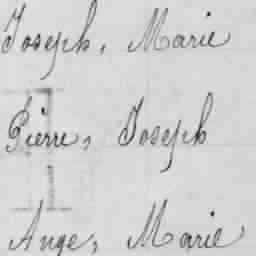 Joseph, Marie
Pierre, Joseph
Ange, Marie